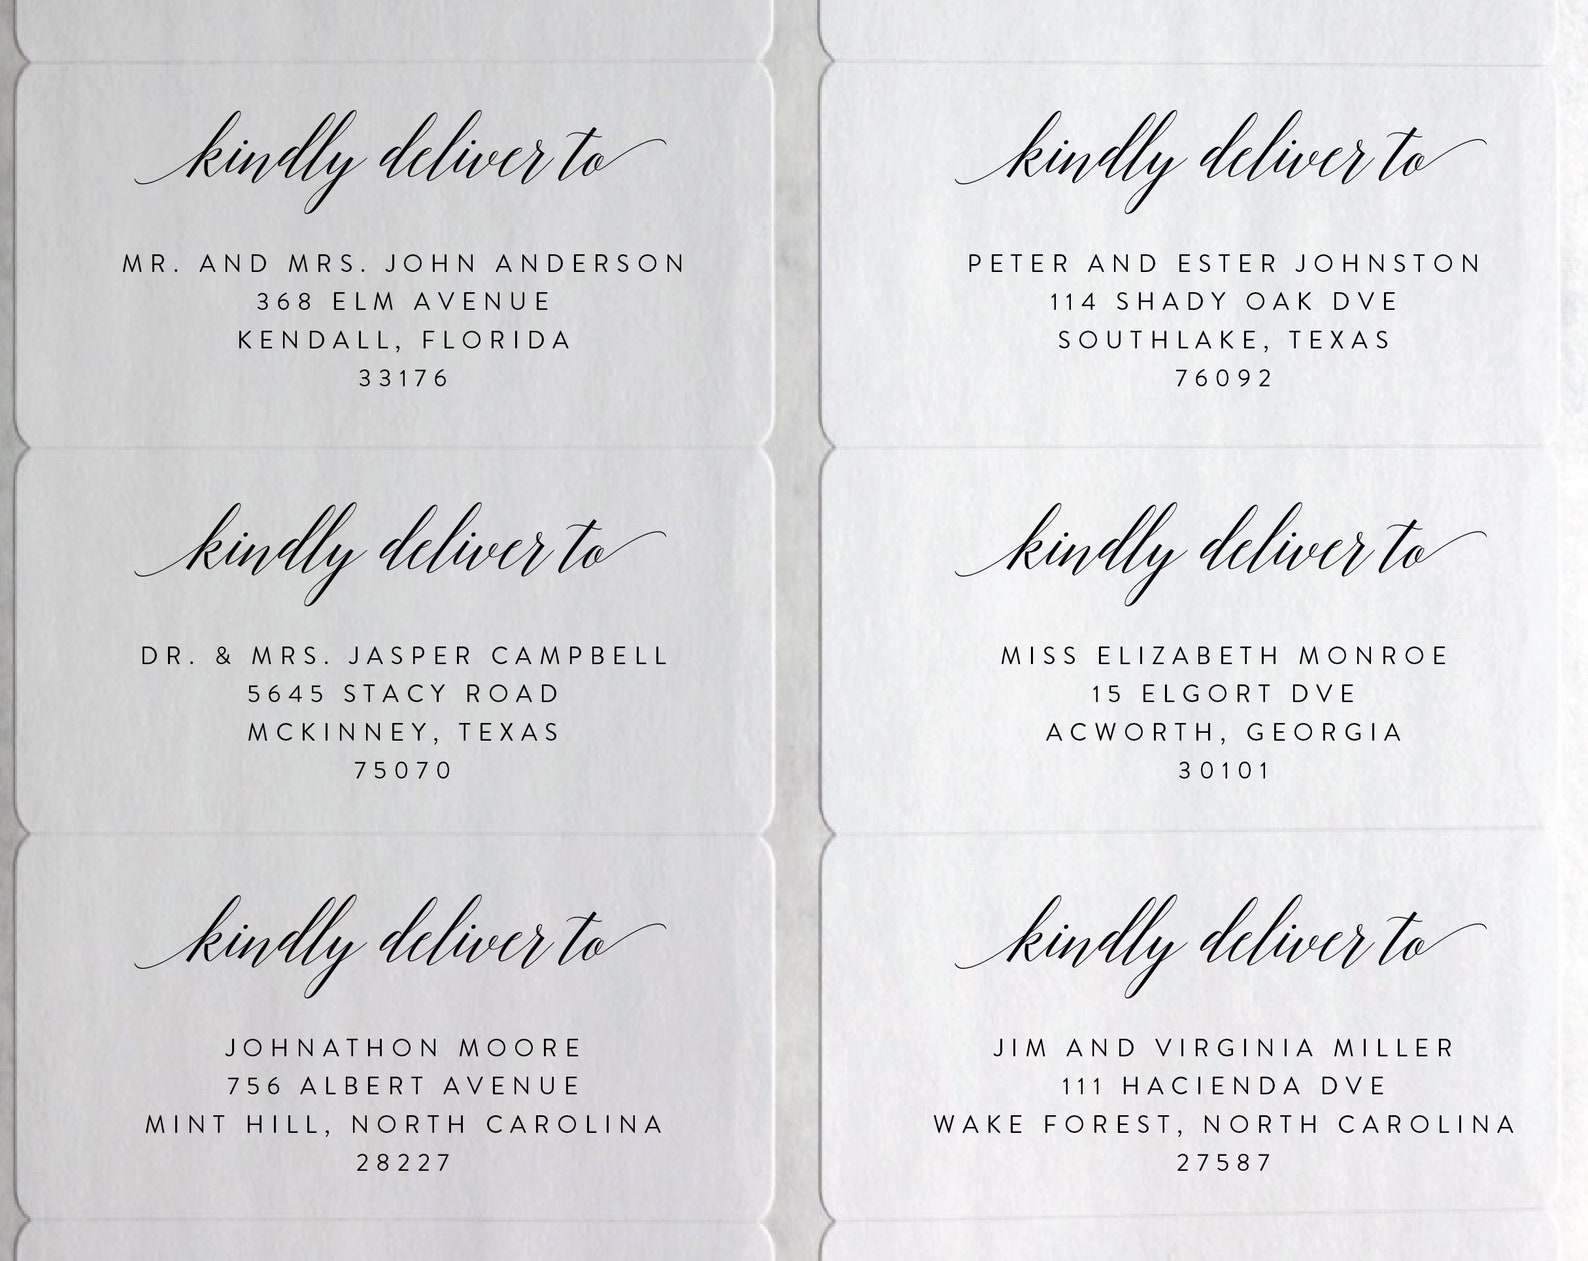 kindly deliver to
MR. AND MRS. JOHN ANDERSON
368 ELM AVENUE
KENDALL, FLORIDA
33176
kindly deliver to
PETER AND ESTER JOHNSTON
114 SHADY OAK DVE
SOUTHLAKE, TEXAS
76092
kindly deliver to
DR. & MRS. JASPER CAMPBELL
5645 STACY ROAD
MCKINNEY, TEXAS
75070
kindly deliver to
MISS ELIZABETH MONROE
15 ELGORT DVE
ACWORTH, GEORGIA
30101
kindly deliver to
JOHNATHON MOORE
756 ALBERT AVENUE
MINT HILL, NORTH CAROLINA
28227
kindly deliver to
JIM AND VIRGINIA MILLER
111 HACIENDA DVE
WAKE FOREST, NORTH CAROLINA
27587